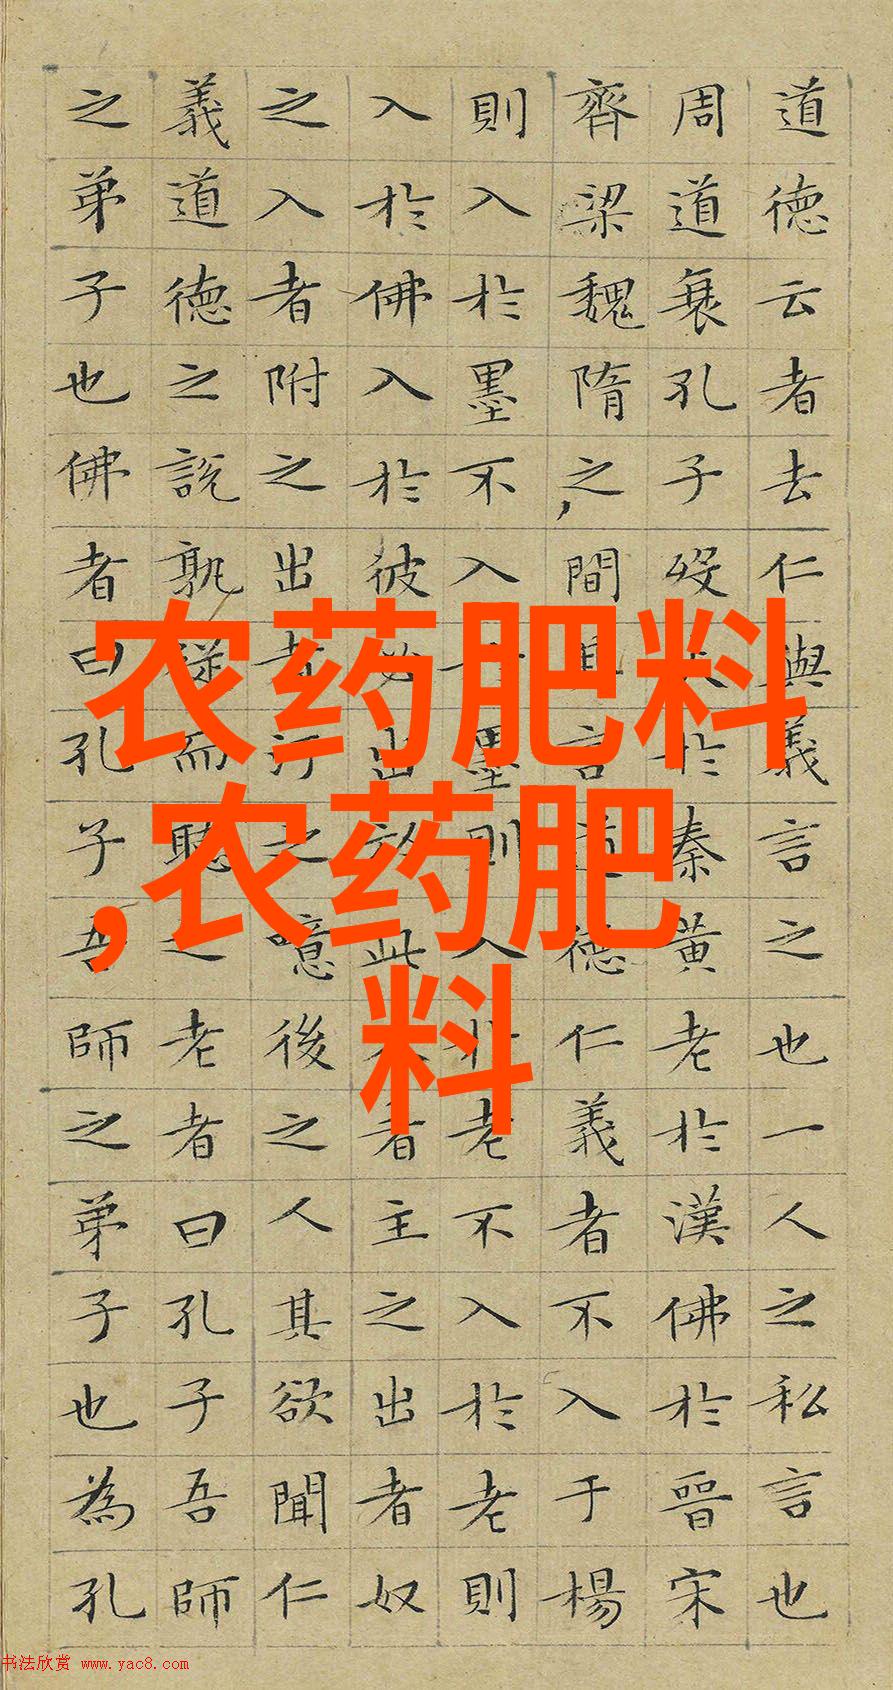 农药肥料
,农药肥
料
道德云者去仁與義言之也一人之私言也
周道衰孔子歿火於秦黃老於漢佛於晉宋
齊梁魏隋之間其言道德仁義者不入于楊
則入於墨不入於墨則入於老不入於老則
入於佛入於彼必出於此入者主之出者奴
之入者附之出者汙之噫後之人其欲聞仁
義道德之說孰從而聽之老者曰孔子吾師
之弟子也佛者曰孔子吾師之弟子也為孔
书法欣赏 www.yac8.com